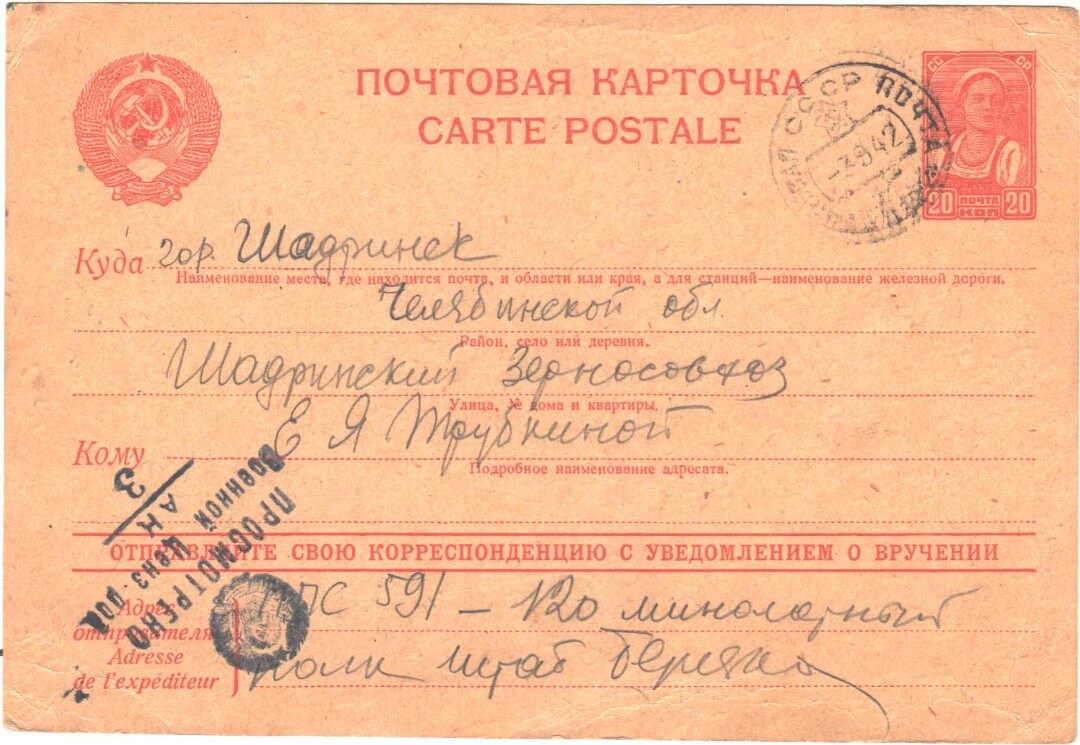 ПОЧТОВАЯ КАРТОЧКА
CARTE POSTALE
СС СР
20 ПОЧТА КОП 20
СССР ПОЧТА
-3 9 42
Куда гор. Шадринск
Наименование места, где находится почта, и области или края, а для станций—наименование железной дороги.
Челябинской обл
Район, село или деревня.
Шадринский Зерносовхоз
Улица, № дома и квартиры.
Кому Е Я Трубкиной
Подробное наименование адресата.
ПРОСМОТРЕНО
Военной Ценз
3
ОТПРАВЛЯЙТЕ СВОЮ КОРРЕСПОНДЕНЦИЮ С УВЕДОМЛЕНИЕМ О ВРУЧЕНИИ
Адрес
отправителя
Adresse
de l'expéditeur
ППС 591 — 120 минометный
полк штаб